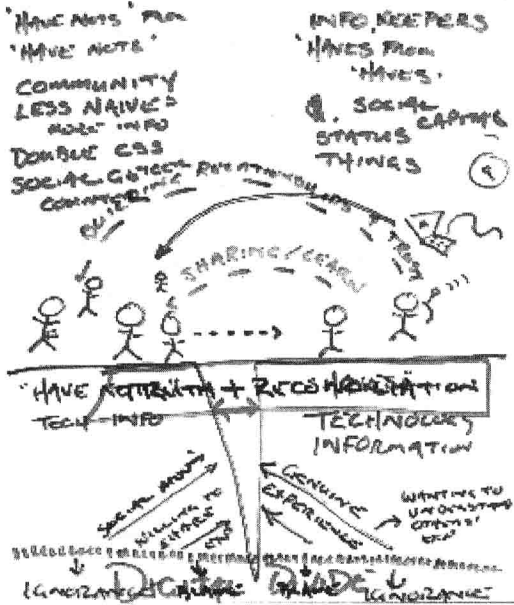 "HAVE NOTS" FROM
"HAVE NOTS"
COMMUNITY
LESS NAIVE
MORE INFO
DOUBLE CSS
SOCIAL
COUNTERING
INFO KEEPERS
"HAVES FROM
"HAVES"
& SOCIAL CAPITAL
STATUS
THINGS
RELATIONSHIPS & TRUST
SHARING/LEARN
"HAVE TRUTH + RECONCILIATION
TECH INFO
TECHNOLOGY
INFORMATION
SOCIAL
WILLING TO
SHARE
GENUINE
EXPERIENCE
WANTING TO
UNDERSTAND
OTHERS'
EXP
IGNORANCE DIGITAL DIVIDE IGNORANCE